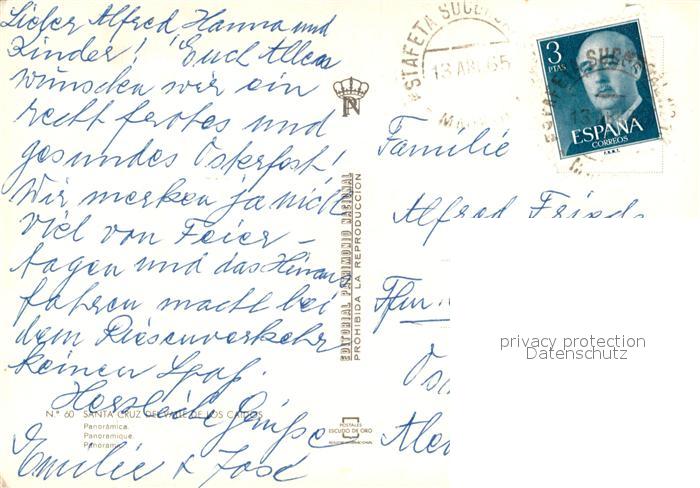 Lieber Alfred, Hanna und
Kinder! Euch Allen
wünschen wir ein
recht frohes und
gesundes Osterfest.
Wir merken ja nicht
viel von Feier-
tagen und das Hinaus
fahren macht bei
dem Riesenverkehr
keinen Spaß.
Herzliche Grüsse
Emilie & José
Nº 60 SANTA CRUZ DEL VALLE DE LOS CAIDOS
Panorámica.
Panoramique.
EDITORIAL PATRIMONIO NACIONAL
PROHIBIDA LA REPRODUCCION
POSTALES
ESCUDO DE ORO
ESTAFETA SUCURSAL
13 ABR 65
3
PTAS
ESPAÑA
CORREOS
F.N.M.T.
Familie
Alfred
privacy protection
Datenschutz